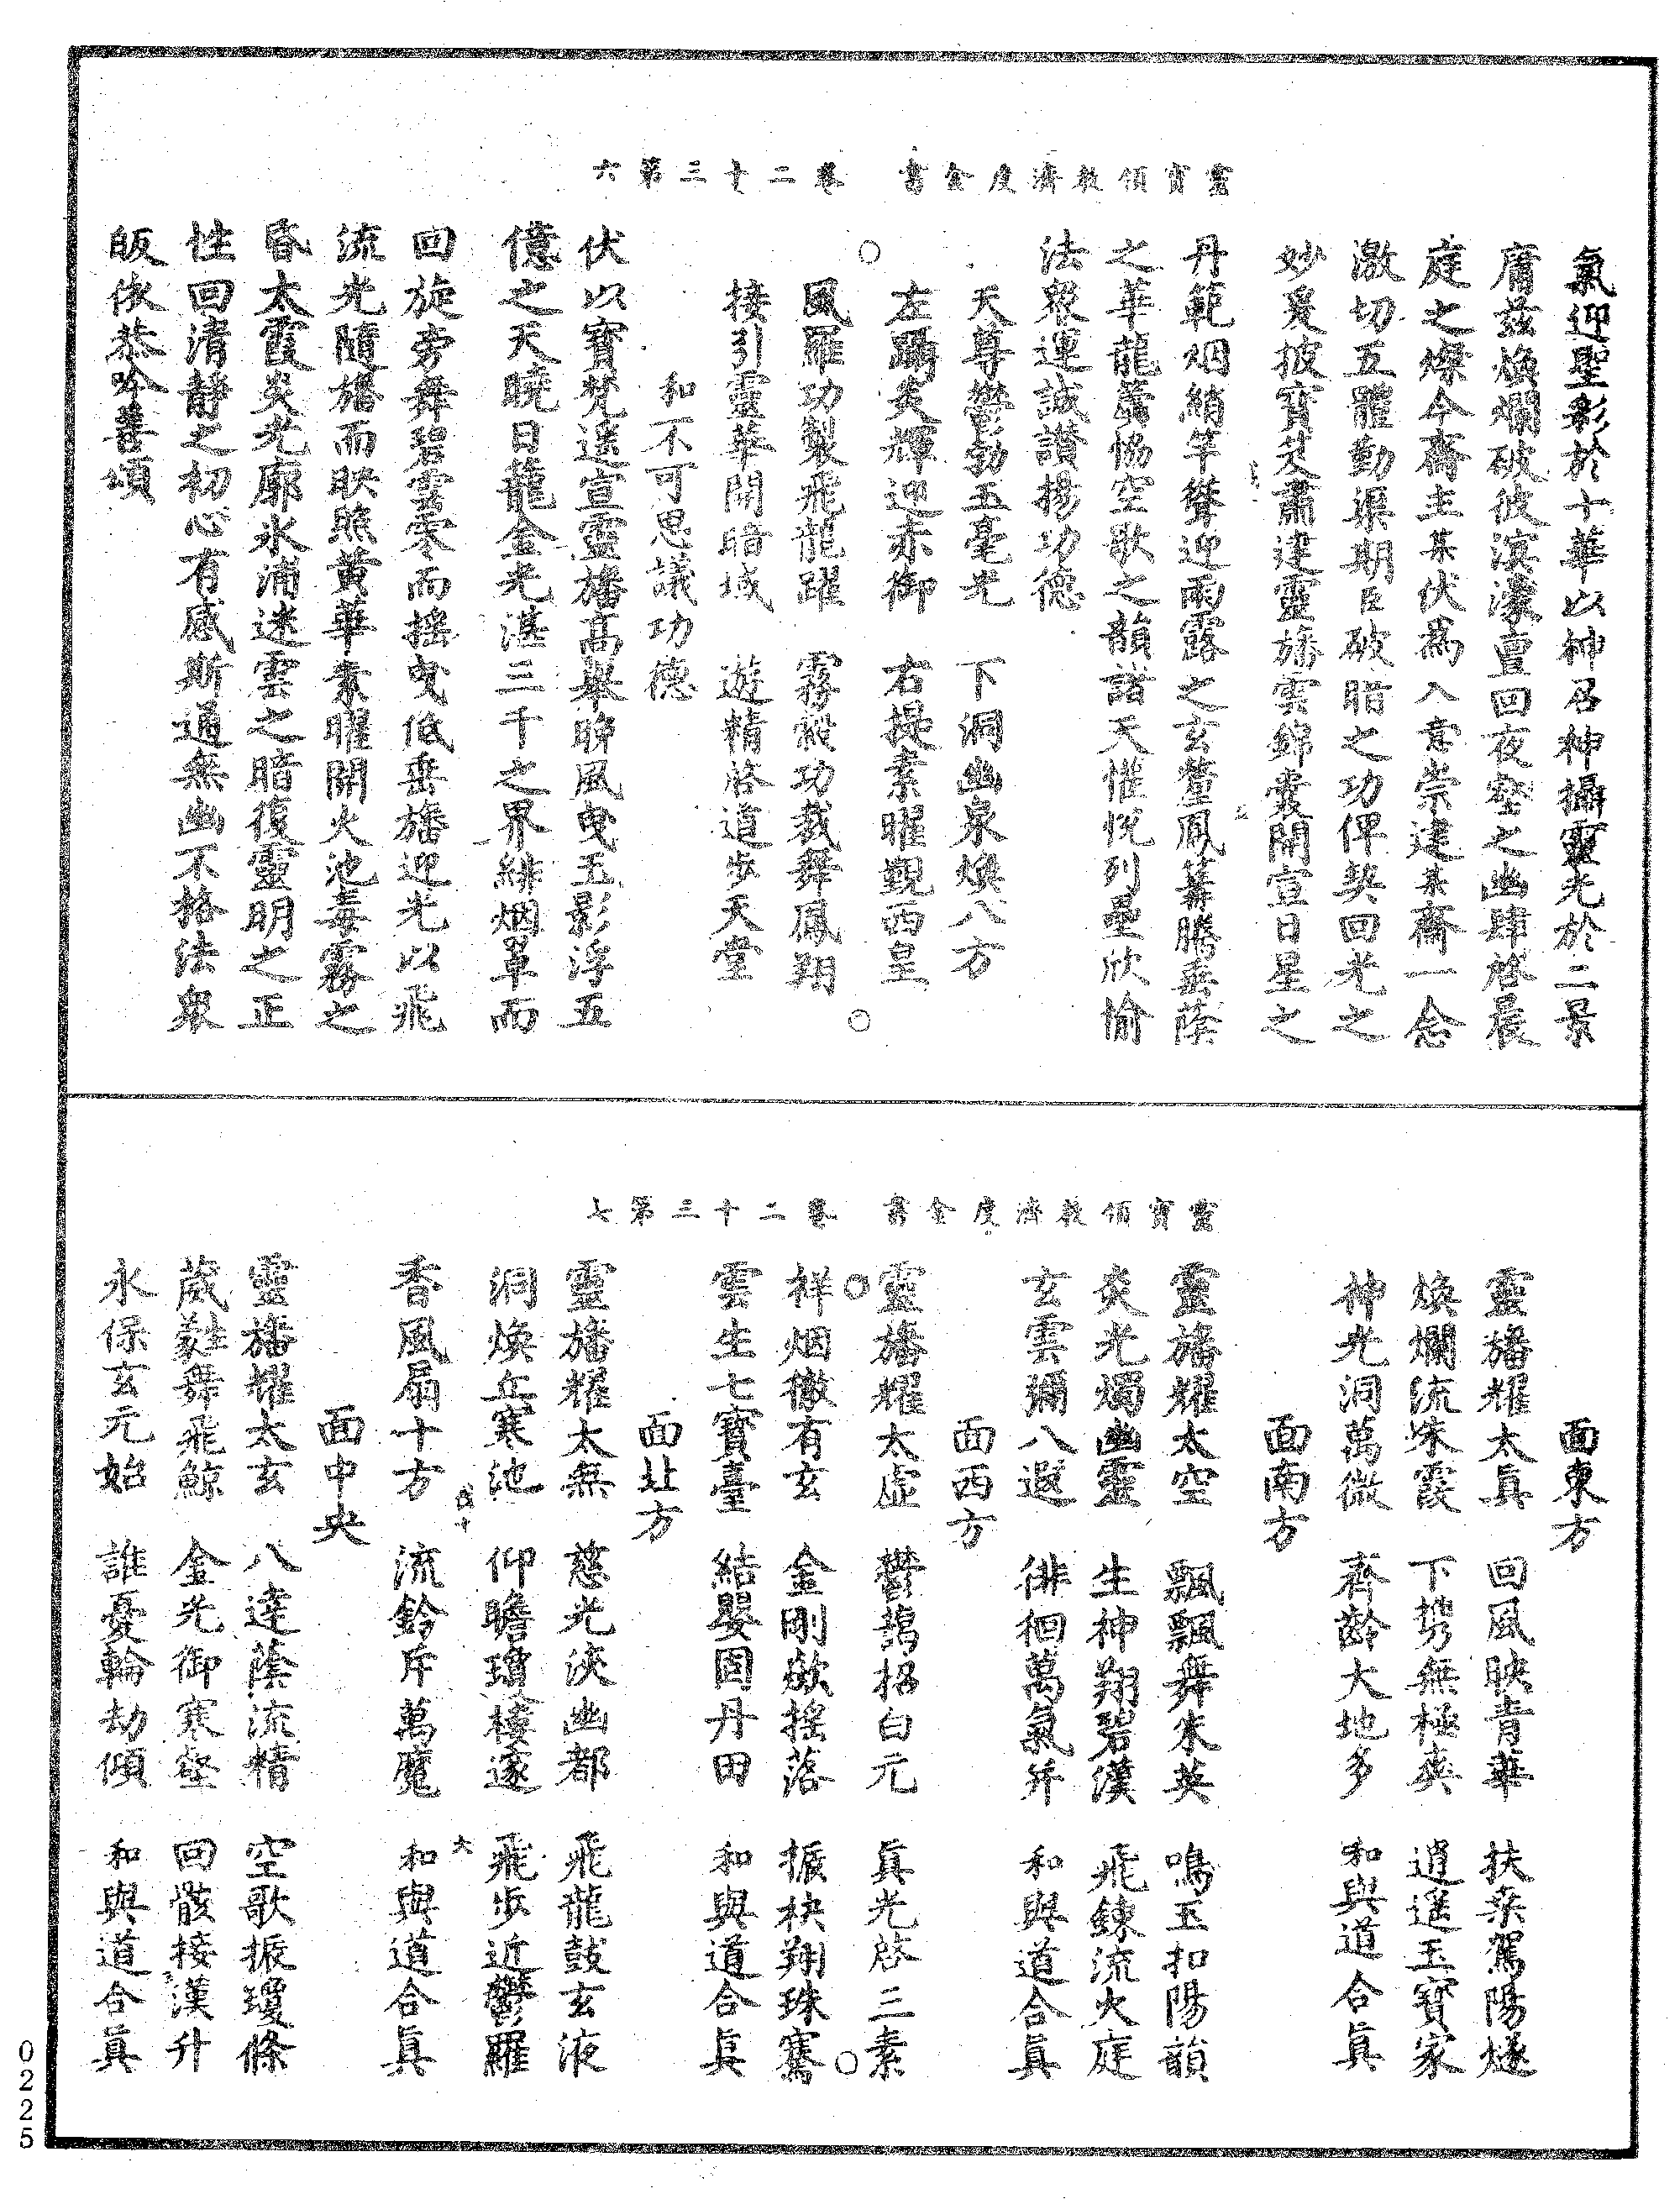 靈寶領教濟度金書　卷二十三第六
氣迎聖彩於十華以神召神攝靈光於二景
庸茲煥爛破彼溟濛亶回夜壑之幽肆啓晨
庭之燦今齋主某伏爲入意崇建某齋一念
激切五體勤渠期臣破暗之功俾契回光之
妙爰披寶笈肅建靈旛雲錦囊開宣日星之
丹範烟綃竿聳迎雨露之玄釐鳳篆騰垂蔭
之華龍篇協空歌之韻諸天懽悅列聖欣愉
法衆運誠讚揚功德
天尊鬱勃玉毫光　下洞幽泉煥八方
左躡炎輝迎赤御　右提素曜覲西皇
風羅功製飛龍躍　霧縠功裁舞鳳翔
接引靈華開暗域　遊精啓道步天堂
和不可思議功德
伏以寶梵遥宣靈旛高舉睇風曳玉影浮五
億之天曉日龍金光湛三千之界緋烟罩而
回旋旁舞碧雲零而搖曳低垂旛迎光以飛
流光隨旛而映照黃華素曜開火池毒霧之
昏太霞炎光廓水浦迷雲之暗復靈明之正
性回清靜之初心有感斯通無幽不格法衆
皈依恭吟善頌
靈寶領教濟度金書　卷二十三第七
面東方
靈旛耀太眞　回風映青華　扶桑駕陽燧
煥爛流朱霞　下勞無極爽　逍遥玉寶家
神光洞萬微　齊齡大地多　和與道合眞
面南方
靈旛耀太空　飄飄舞朱英　鳴玉扣陽韻
炎光燭幽靈　生神翔碧漢　飛鍊流火庭
玄雲彌八遐　徘徊萬氣并　和與道合眞
面西方
靈旛耀太虛　鬱藹招白元　眞光啓三素
祥烟徹有玄　金剛歘搖落　振袂翔珠騫
雲生七寶臺　結嬰固丹田　和與道合眞
面北方
靈旛耀太無　慈光浹幽都　飛龍鼓玄液
洞煥丘寒池　仰瞻瓊樓邃　飛步近鬱羅
香風扇十方　流鈴斥萬魔　和與道合眞
面中央
靈旛耀太玄　八達蔭流精　空歌振瓊條
葳蕤舞飛鯨　金光御寒壑　回骸接漢升
永保玄元始　誰憂輪劫傾　和與道合眞
0225